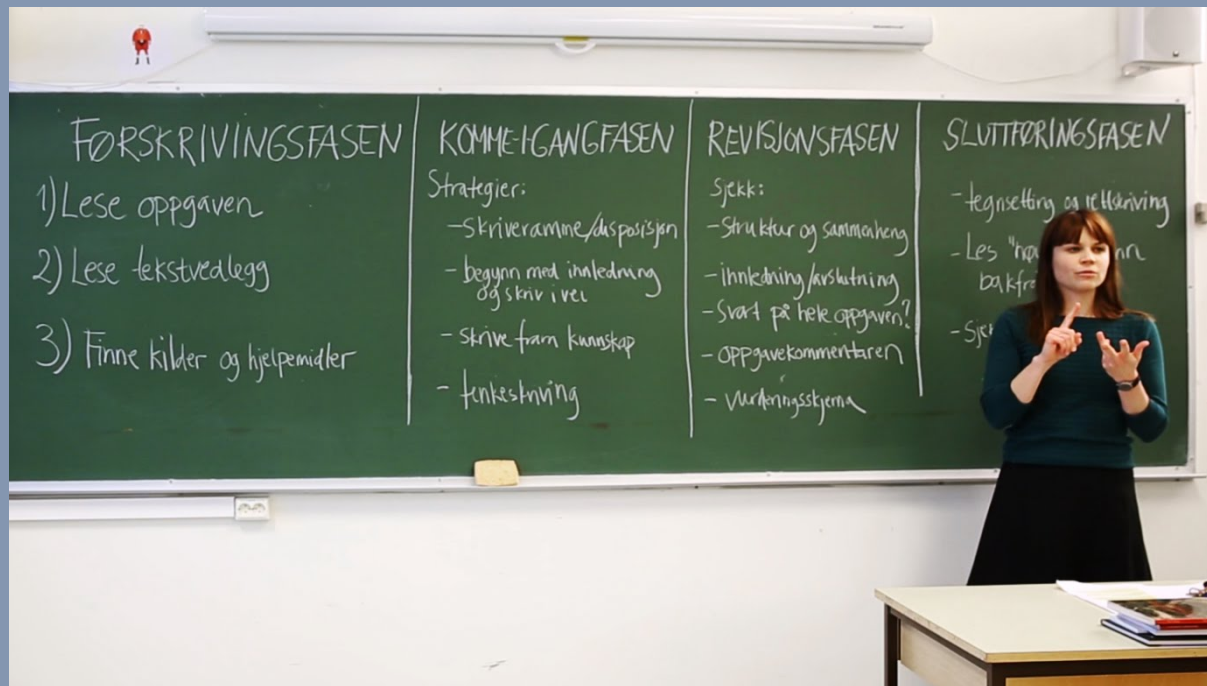 FØRSKRIVINGSFASEN
1) Lese oppgaven
2) Lese tekstvedlegg
3) Finne kilder og hjelpemidler
KOMME-I-GANGFASEN
Strategier:
- skriveramme/disposisjon
- begynn med innledning
og skriv ivei
- skrive fram kunnskap
- tenkeskriving
REVISJONSFASEN
Sjekk:
- Struktur og sammenheng
- innledning/avslutning
- Svart på hele oppgaven?
- oppgavekommentaren
- vurderingsskjema
SLUTTFØRINGSFASEN
- tegnsetting og rettskriving
- Les